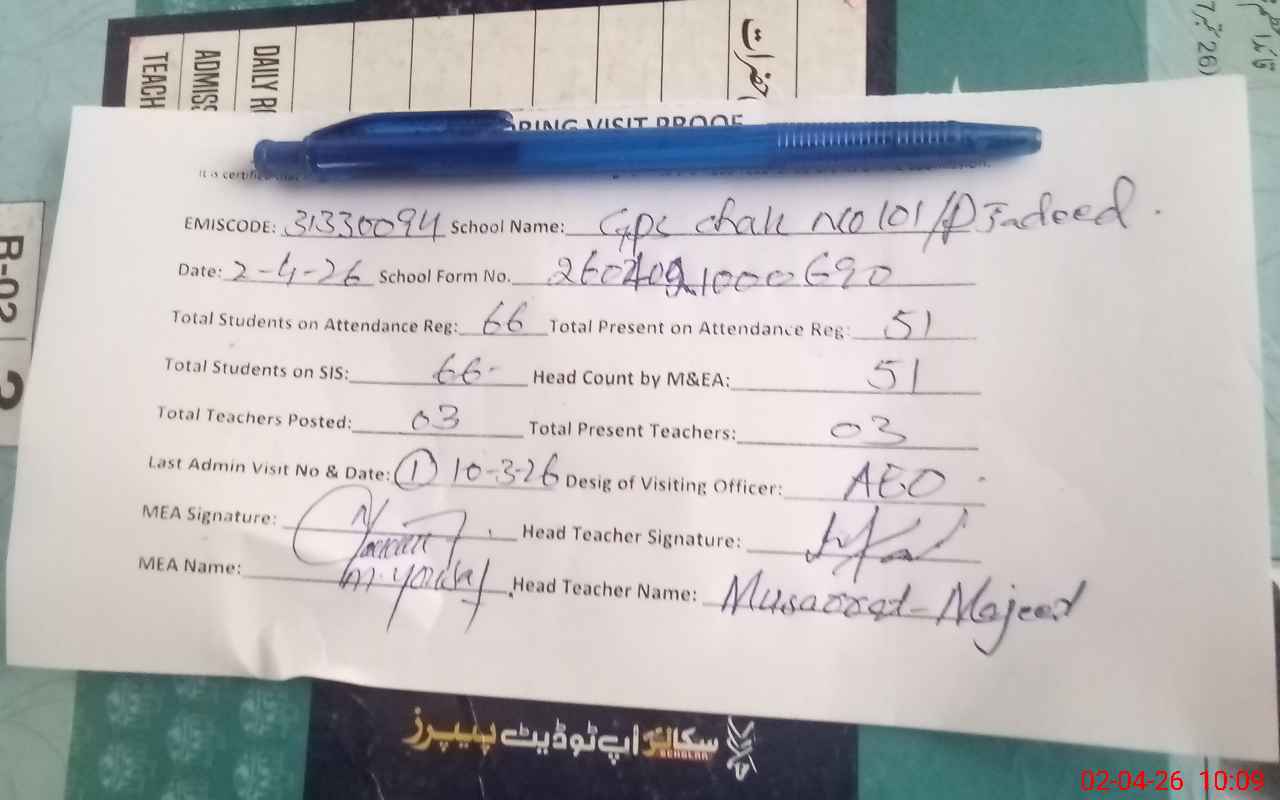 TEACH
ADMISS
DAILY R
RING VISIT PROOF
It is certifie
EMISCODE: 31330094 School Name: GPS chak no 101/P Jadeed.
Date: 2-4-26 School Form No. 2604091000690
Total Students on Attendance Reg: 66 Total Present on Attendance Reg: 51
Total Students on SIS: 66 Head Count by M&EA: 51
Total Teachers Posted: 03 Total Present Teachers: 03
Last Admin Visit No & Date: ① 10-3-26 Desig of Visiting Officer: AEO
MEA Signature: Head Teacher Signature:
MEA Name: M. Yousaf Head Teacher Name: Musarrat Majeed
R-02 2
سکالر اپ ٹو ڈیٹ پیپرز
SCHOLAR
02-04-26 10:09